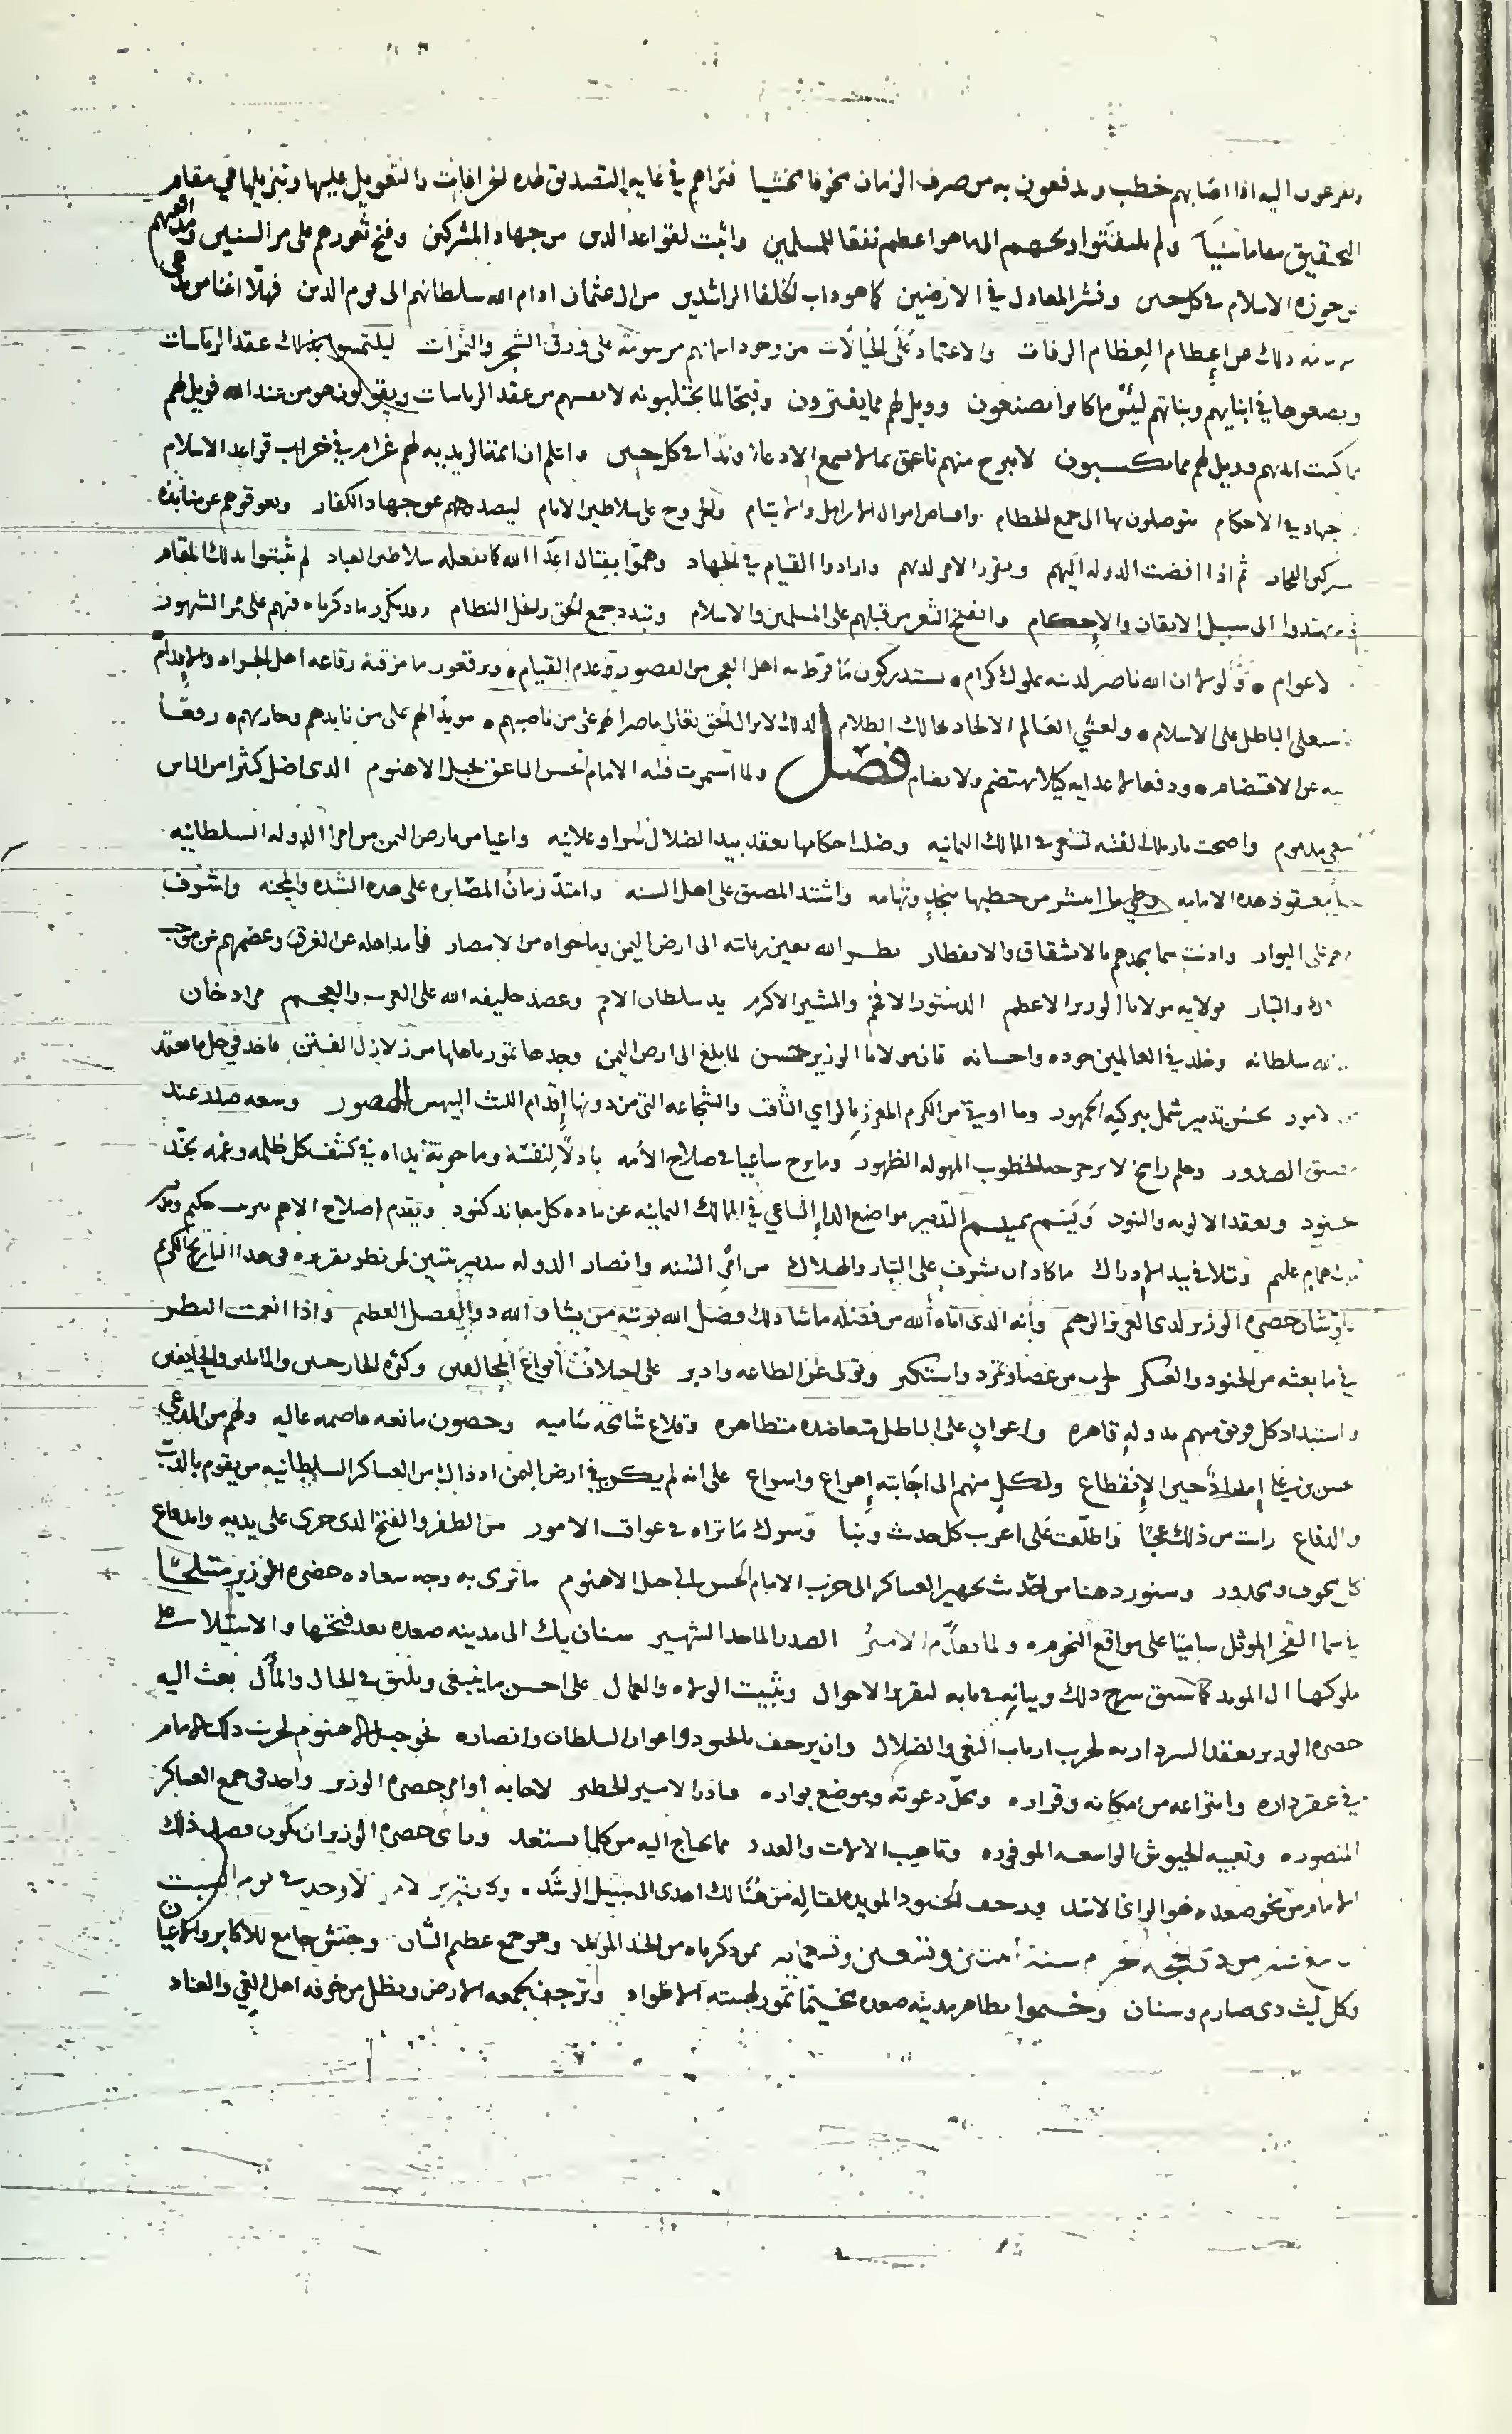 ويفزعون اليه اذا اصابهم خطب ويدفعون به من صرف الزمان مخوفا مخشيا فتراهم في غايه التصديق لهذه الخرافات والتعويل عليها وتنزيلها في مقام
التحقيق مقاما سَنِيّا ولم يلتفتوا وكهم الى ما هو اعظم نفعا للمسلمين واثبت لقواعد الدين من جهاد المشركين وفتح ثغورهم على مر السنين ومدافعتهم
عن حوزة الاسلام في كل حين ونشر المعادل في الارضين كما هو داب الخلفا الراشدين من ال عثمان ادام الله سلطانهم الى يوم الدين فهلا اغنا من
ذلك عن إعطام العِظام الرفات والاعتماد عَلى الخيالات من وجود اسمائهم مرسومة على ورق الشجر والثمرات ليلتمسوا بذلك عقد الرياسات
ويضعوها في ابنايهم وبناتهم لبئس ما كانوا يصنعون وويل لهم مما يفترون وقبحًا لما يجتلبونه لانفسهم من عقد الرياسات ويقولون هو من عند الله فويل لهم
مما كتبت ايديهم وويل لهم مما يكسبون لا يبرح منهم ناعق بما لا يسمع الا دعاءً وندًا في كل حين واعلم ان ائمة الزيديه لهم غرام في خراب قواعد الاسلام
جهاد في الاحكام يتوصلون بها الى جمع الحطام واقتناص اموال الارامل والايتام والخروج على سلاطين الانام ليصدوهم عن جهاد الكفار ويعوقوهم عن منابذة
مشركي الفجار ثم اذا افضت الدوله اليهم وتقرر الامر لديهم وارادوا القيام في الجهاد وهمّوا بقتال اعدا الله كما يفعله سلاطين العباد لم يثبتوا بذلك المقام
يهتدوا الى سبيل الاتقان والاحكام وانفتح الثغر من قبلهم على المسلمين والاسلام وتبدد جمع الحق وانحل النظام وقد تكرر ما ذكرناه منهم على مر الشهور
والاعوام ولولا ان الله ناصر لدينه بملوك كرام يستدركون مَا فرّط به اهل العجز من القصور في عدم القيام ويرقعون ما مزقته رقاعه اهل الجراه والإقدام
لاستعلى الباطل على الاسلام ولغشي العَالم الالحاد بحالك الظلام لذلك لا يزال الحق تعالى ناصرا لهم على من ناصبهم مويدًا لهم على من نابذهم وحاربهم رفعًا
به عن الاهتضام ودفعا لاعدايه كيلا يهتضم ولا يضام فصل ولما استمرت فتنه الامام الحسن الناعق بجبل الاهنوم الذي اضل كثيرا من الناس
بسعي مذموم واضحت نار تلك الفتنه تستعر في الممالك اليمانيه وضلت احكامها تعقد بيد الضلال سرا وعلانيه واعيا من بارض اليمن من امرا الدوله السلطانيه
حل معقود هذه الامامه وطي ما انتشر من خطبها بنجدٍ وتهامه واشتد المضيق على اهل السنه وامتدّ زمان المصابره على هذه الشده والمحنه واشرف
على البوار واذنت سما مجدهم بالانشقاق والانفطار نظر الله بعين رعايته الى ارض اليمن وما حواه من الامصار فامد اهله عن الغرق وعصمهم عن موجب
الهلاك والتبار بولايه مولانا الوزير الاعظم الدستور الافخم والمشير الاكرم يد سلطان الامم وعضد خليفه الله على العرب والعجم مراد خان
خلد الله سلطانه وخلد في العالمين جوده واحسانه فان مولانا الوزير حسن لما بلغ الى ارض اليمن وجدها تمور باهلها من زلازل الفتن فاخذ في حل ما تعقد
من الامور بحسن تدبير شمل ببركته الجمهور وما اوتي من الكرم المعزز بالراي الثاقب والشجاعه التي من دونها إقدام الليث البيهس الهصور وسعه صدر عند
ضيق الصدور وحلم راسخ لا يزحزحه الخطوب المهوله الظهور وما برح ساعيا في صلاح الأمه باذلًا لنفسه وما حوته يداه في كشف كل ظلمه وغمه يجنّد
جنود ويعقد الالويه والبنود وَيَسِم بميسم التدبير مواضع الداء الساعي في الممالك اليمانيه عن ماده كل معاند كنود ويقدم اصلاح الاهم بترتيب حكيم
همام عليم وتلافي بيد الادراك ما كاد ان يشرف على التبار والهلاك من امر السُنه وانصار الدوله بتدبير يتبين لمن نظر تقريره في هذا التاريخ الكريم
شان حضره الوزير لدى العزيز الرحيم وأنه الذي اتاه الله من فضله ما شا ذلك فضل الله يوتيه من يشا والله ذو الفضل العظيم واذا انعمت النظر
في ما بعثه من الجنود والعسكر لحرب من عصا وتمرد واستكبر وتولى عن الطاعه وادبر على اختلاف أنواع المخالفين وكثرة الخارجين والمايلين والحايفين
واستبداد كل فريق منهم بدولةٍ قاهره واعوان على الباطل متعاضده متظاهره وقلاع شامخه سَاميه وحصون مانعه عاصمه عاليه ولهم من المدعي
حسن بن علي إمداد حين الانقطاع ولكل منهم الى اجَابته إهراع واسراع على انه لم يكن في ارض اليمن اذ ذاك من العساكر السلطانيه من يقوم بالذب
والدفاع رايت من ذلك عجبًا واطّلعت على اغرب كل حدث ونبا وسرك مَا تراه في عواقب الامور من الظفر والفتح الذي جرى على يديه واندفاع
ما يخوف ويحذر وسنورد هنا من حَدث تجهيز العساكر الى حرب الامام الحسن الى جبل الاهنوم ما ترى به وجه سعاده حضره الوزير متبلجًا
في سما الفخر الموثل ساميًا على مواقع النجوم ولما تقدَّم الامير الصدر الماجد الشهير سنان بك الى مدينه صعده بعد فتحها والاستيلا على
ملوكها ال المويد كما سبق شرح ذلك وبيانه في بابه لتقرير الاحوال وتثبيت الولاه والعمال على احسن ما ينبغي ويليق في الحال والمآل بعث اليه
حضره الوزير بعقد السرداريه لحرب ارباب البغي والضلال وان يزحف بالجنود واعوان السلطان وانصاره نحو جبل الاهنوم لحرب ذلك الامام
في عقر داره وانتزاعه من امكانه وقراره ومحلّ دعوته وموضع بواره فبادر الامير الخطير لاجابه أوامر حضره الوزير واخذ في جمع العساكر
المنصوره وتعبيه الجيوش الواسعه الموفوره وتاهيب الالات والعدد مما يحتاج اليه من كلما يستعد وراى حضره الوزير ان يكون قصد ذلك
الامام من نحو صعده هو الراي الاسد ويزحف الجنود المويده لقتاله من هنالك اهدى الى سبيل الرشَد وكان تبريز الامر الاوحد في يوم السبت
من ذي الحجه الحرام سنة اثنتين وتسعين وتسعمايه بمن ذكرناه من الجند المويد وهو جمع عظيم الشان وجيش جامع للاكابر والاعيان
وكل ليث ذي صارم وسنان وخيموا بظاهر مدينه صعده مخيّمًا تمور لهيبته الاطواد وترجف بجمعه الارض ويظل من خوفه اهل البغي والعناد